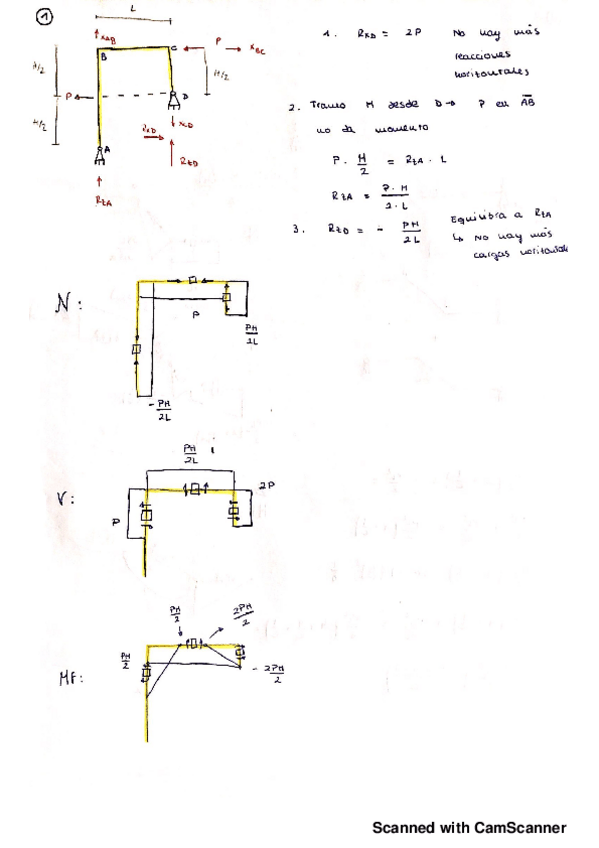 1
L
XAB
B
C
P
XBC
H/2
H/2
P
D
RXD
XCD
H/2
A
RZD
RZA
1. RXD = 2P No hay más
reacciones
horizontales
2. Tramo M desde D → P en AB
no da momento
P · H/2 = RZA · L
RZA = P·H/2·L
3. RZD = - PH/2L Equilibra a RZA
↳ No hay más
cargas horizontales
N:
P
PH/2L
-PH/2L
V:
PH/2L
2P
P
MF:
PH/2
PH/2
2PH/2
- 2PH/2
Scanned with CamScanner